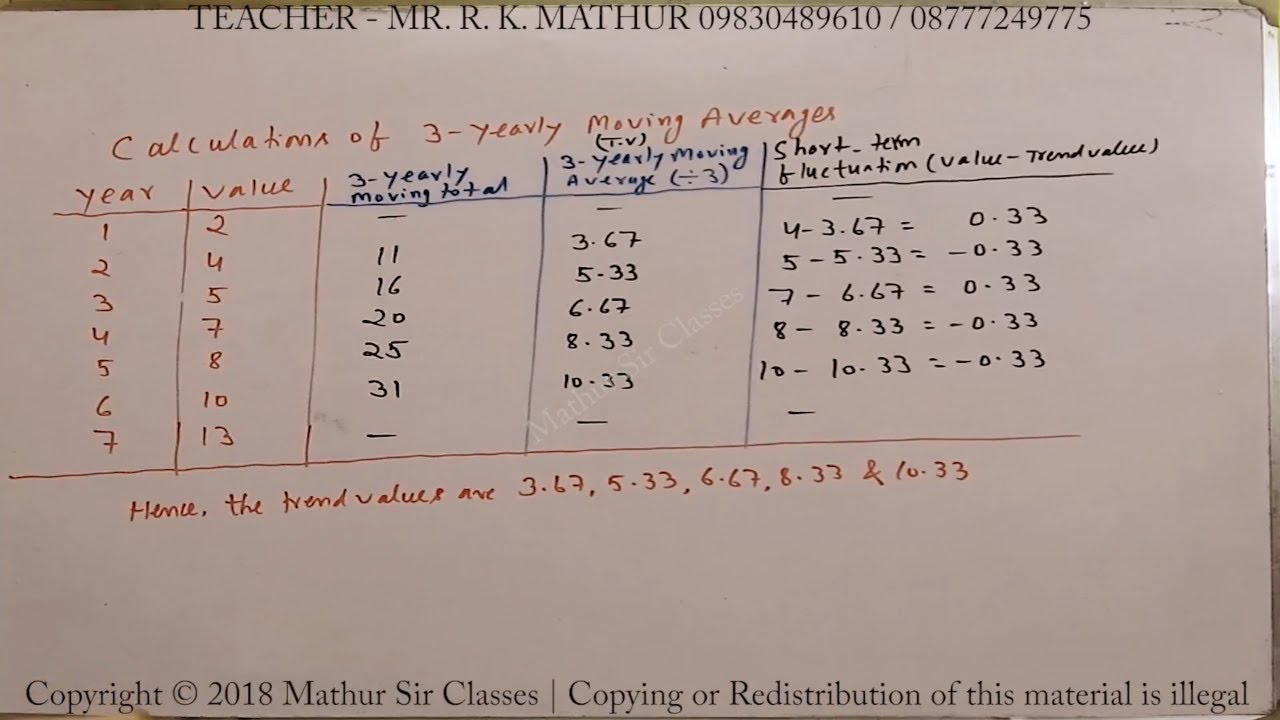 TEACHER - MR. R. K. MATHUR 09830489610 / 08777249775
Calculations of 3-yearly Moving Averages
(T.V)
year value 3-yearly moving total 3-yearly Moving Average (÷3) Short-term fluctuation (value-Trend value)
1 2 — — —
2 4 11 3.67 4-3.67 = 0.33
3 5 16 5.33 5-5.33 = -0.33
4 7 20 6.67 7-6.67 = 0.33
5 8 25 8.33 8-8.33 = -0.33
6 10 31 10.33 10-10.33 = -0.33
7 13 — — —
Hence, the trend values are 3.67, 5.33, 6.67, 8.33 & 10.33
Mathur Sir Classes
Copyright © 2018 Mathur Sir Classes | Copying or Redistribution of this material is illegal